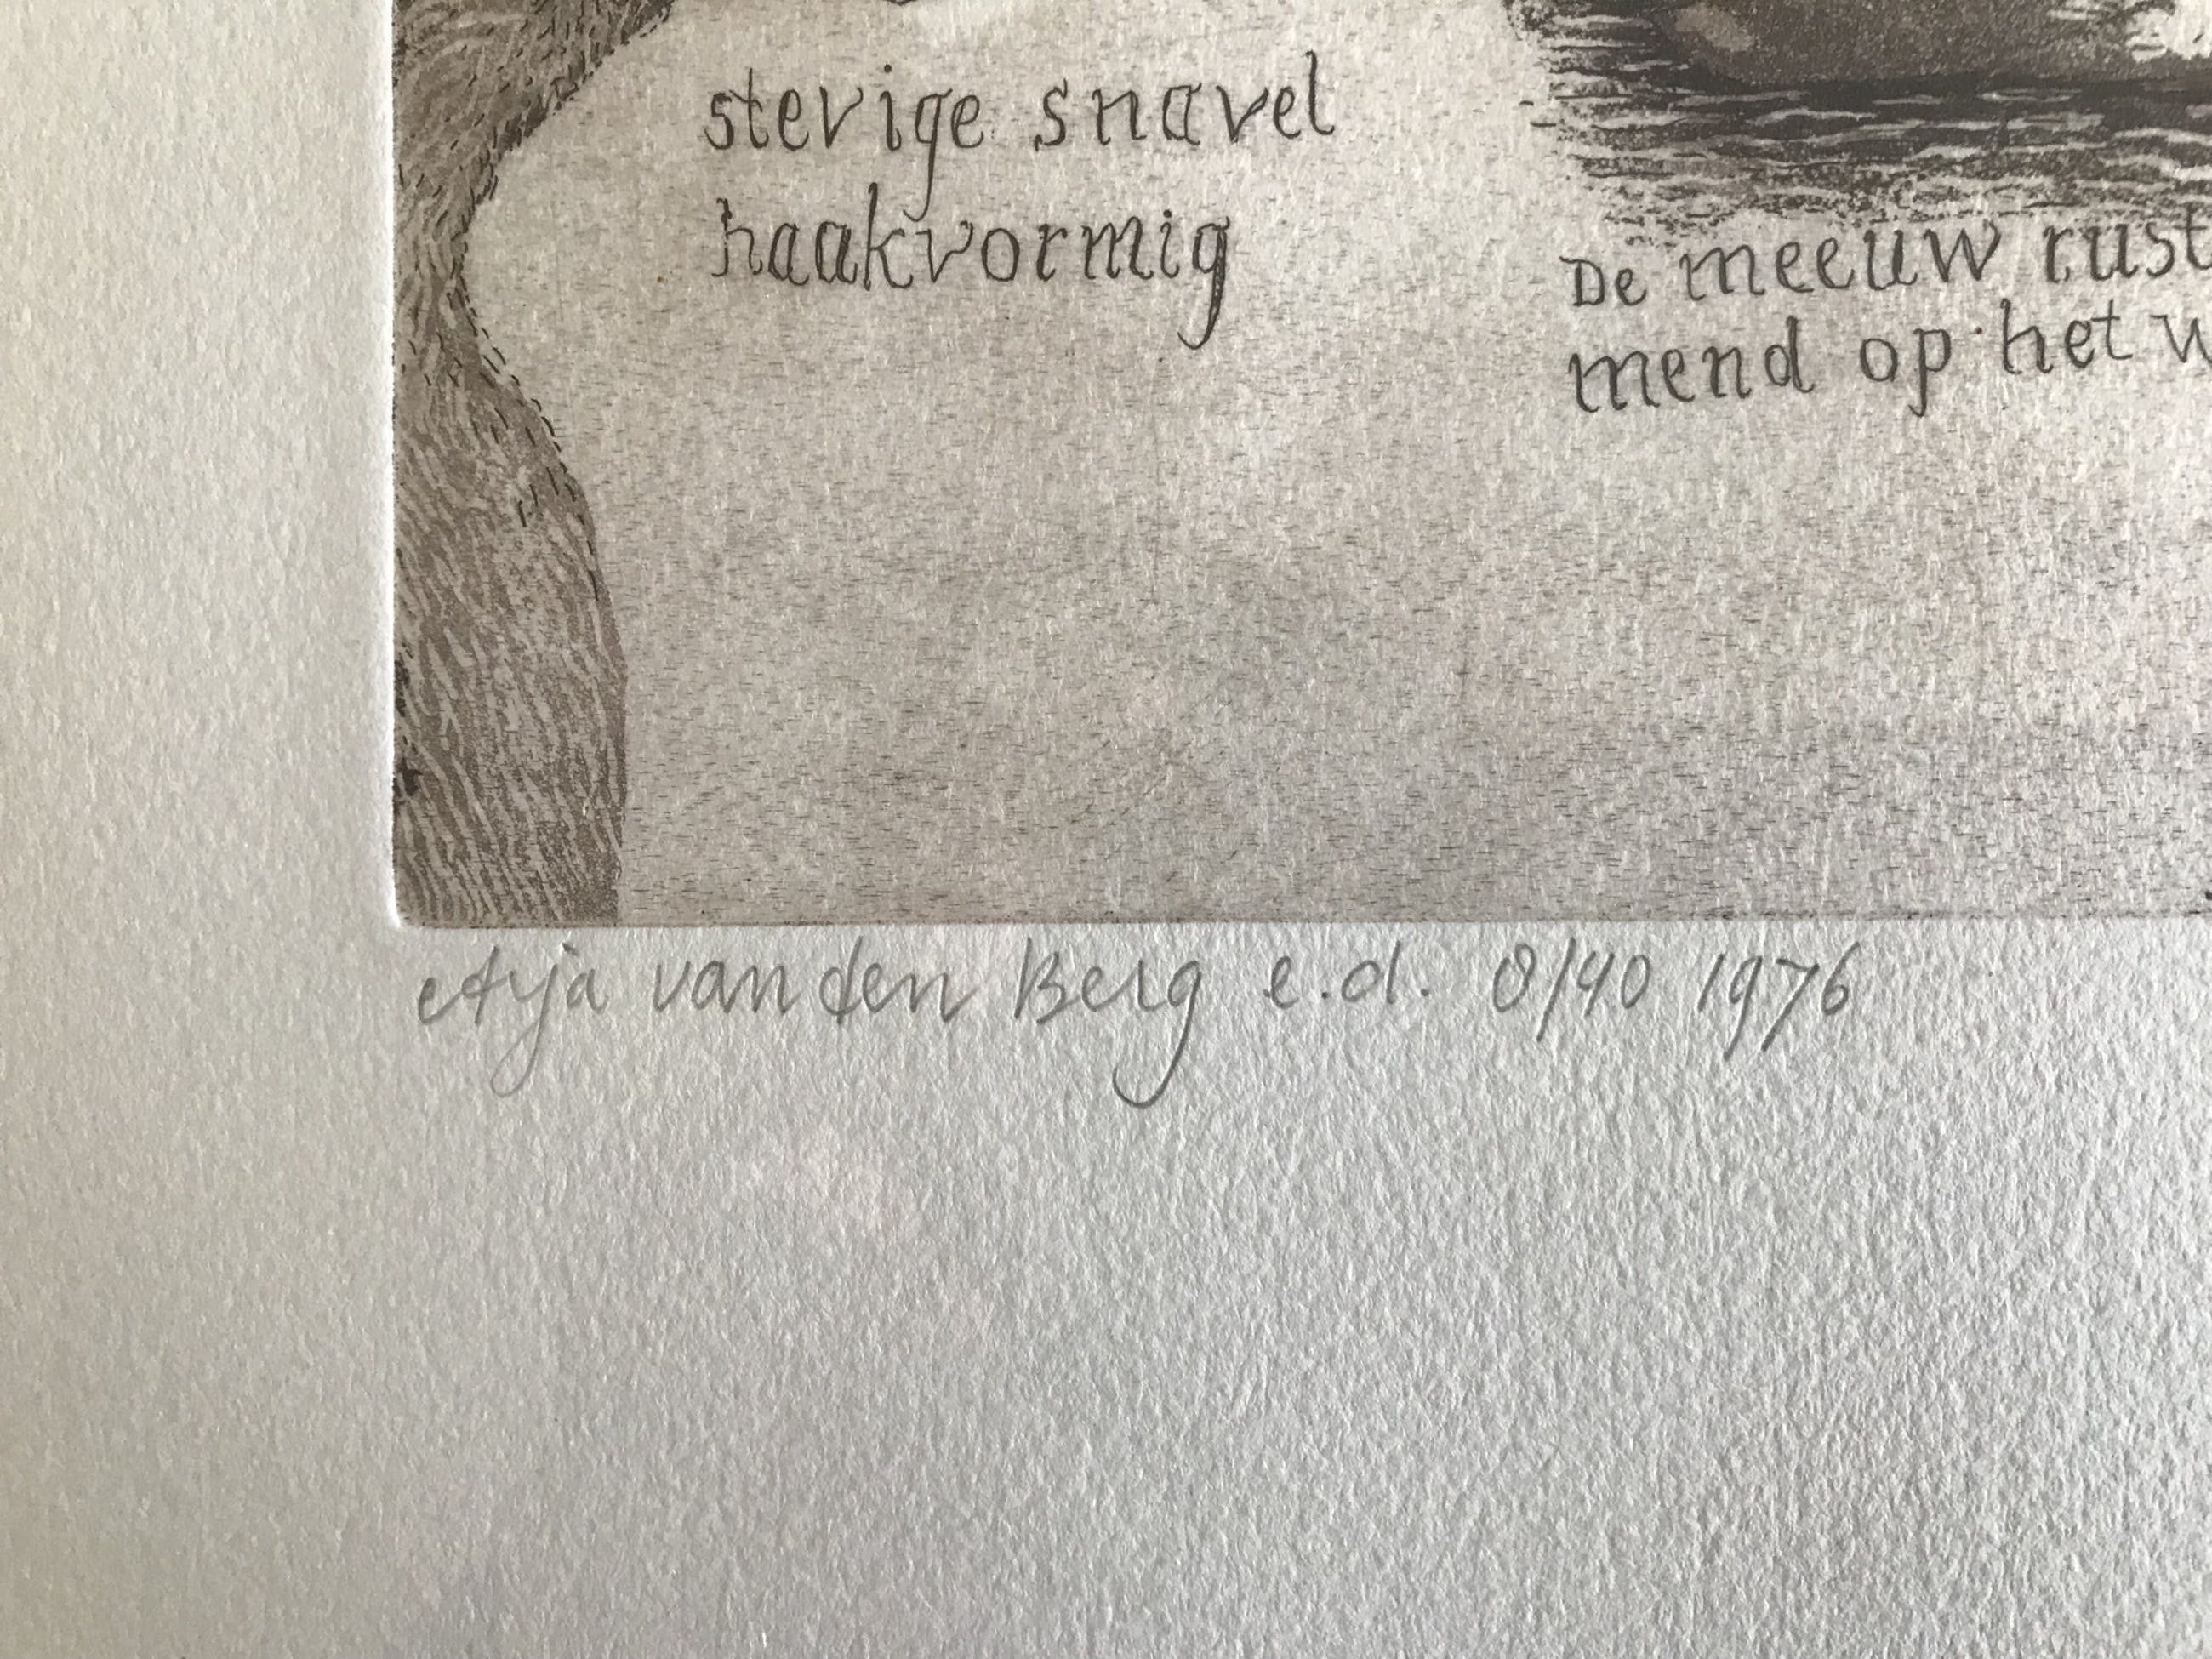 stevige snavel
haakvormig
De meeuw rust
mend op het
Atja van den Berg e.d. 8/40 1976